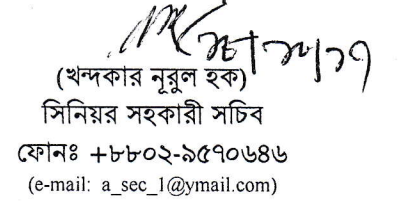 (খন্দকার নূরুল হক)
সিনিয়র সহকারী সচিব
ফোনঃ +৮৮০২-৯৫৭০৬৪৬
(e-mail: a_sec_1@ymail.com)